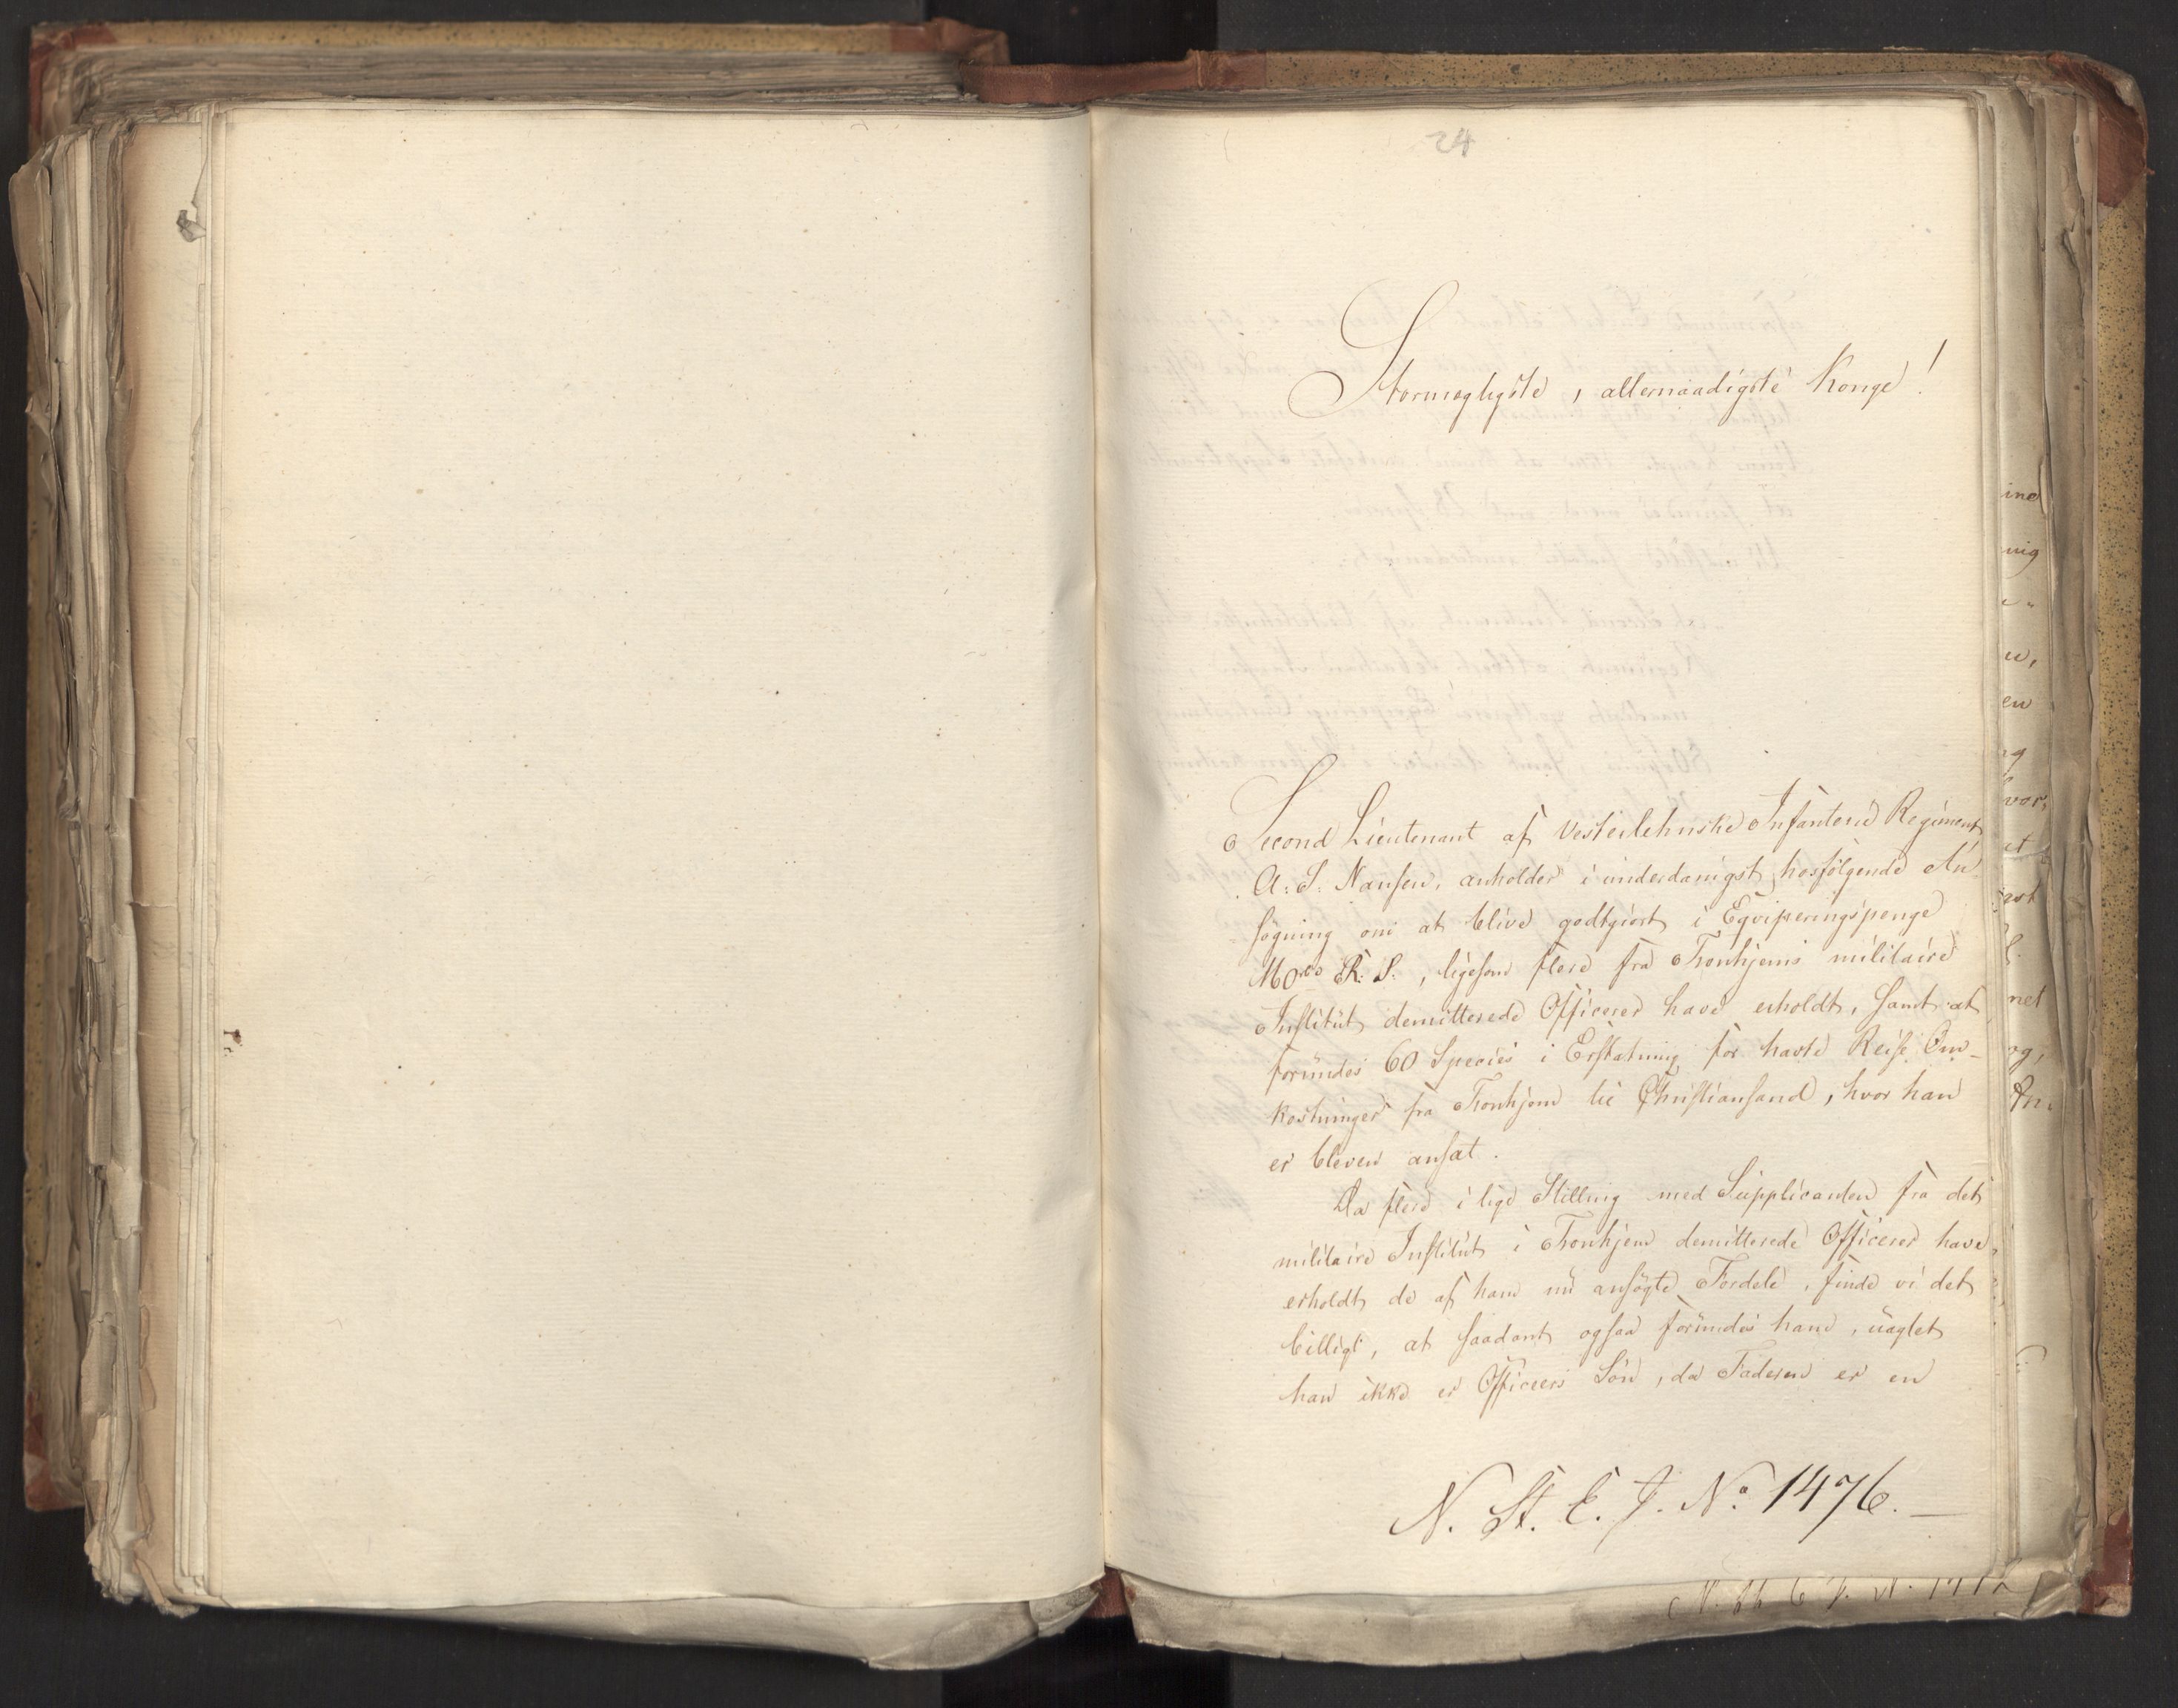 24
Stormægtigste, allernaadigste Konge!
Second Lieutenant af Vesterlehnske Infanterie Regiment
A: S: Nansen, anholder i underdanigst hosfølgende An¬
søgning om at blive godtgiort i Eqviperingspenge
160 R. S., ligesom flere fra Tronhjems militaire
Institut demitterede Officerer have erholdt, samt at
forundes 60 Species i Erstatning for havte Reise Om-
kostninger fra Tronhjem til Christiansand, hvor han
er bleven ansat.
Da flere i lige Stilling med Supplicanten fra det
militaire Institut i Tronhjem demitterede Officerer have
erholdt de af ham nu ansøgte Fordele, finde vi det
billigt, at saadant ogsaa forundes ham, uagtet
han ikke er Officeers Søn, da Faderen er en
N. St. E. J. No. 1476.—